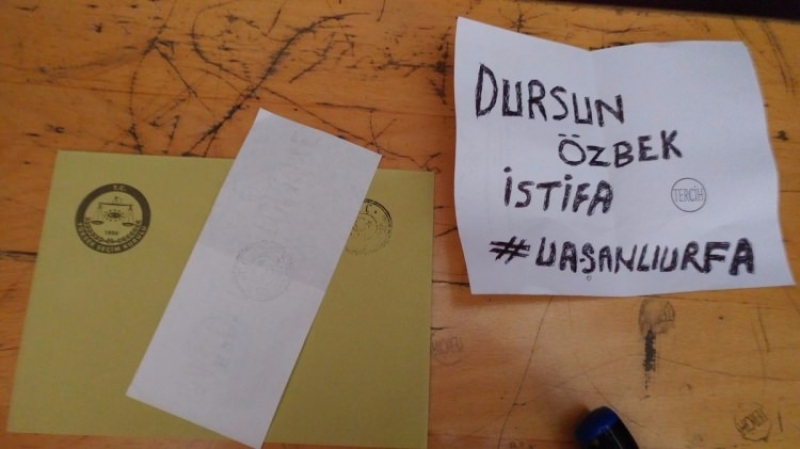 T.C.
YÜKSEK SEÇİM KURULU
1950
DURSUN
ÖZBEK
İSTİFA
TERCİH
#UAŞANLIURFA